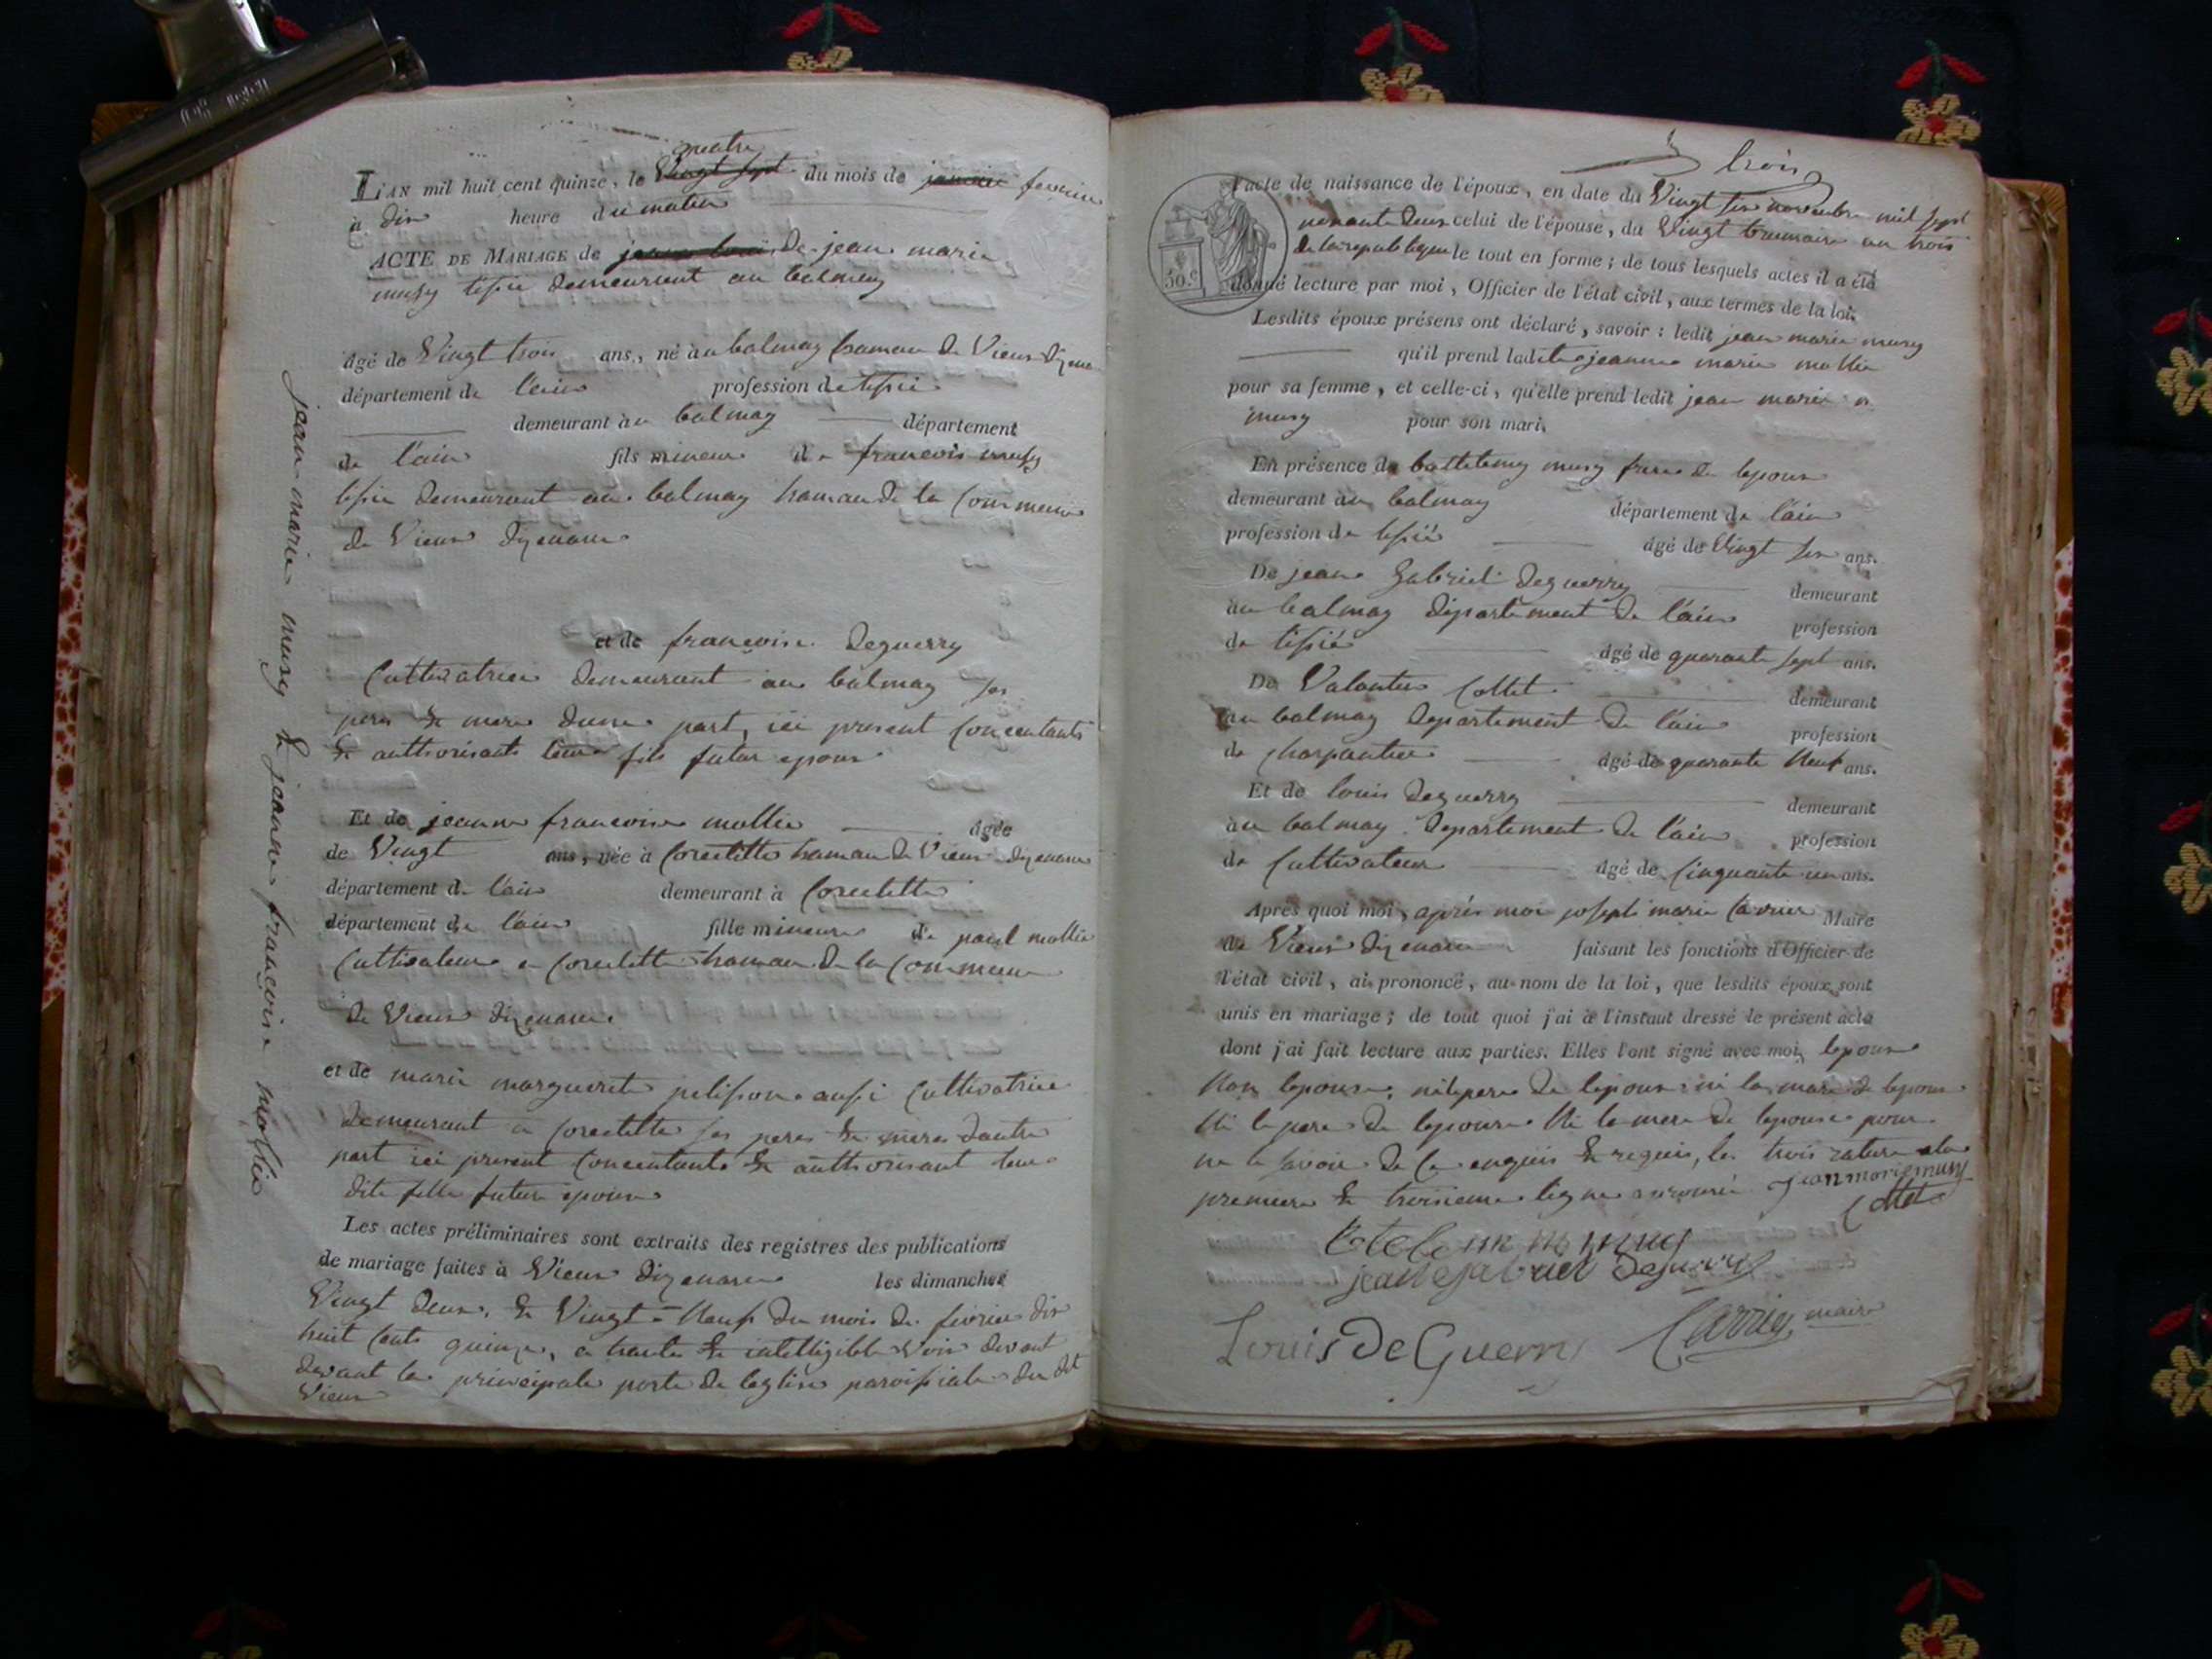 quatre
L'AN mil huit cent quinze, le vingt sept du mois de janvier fevrier
à dix heure du matin
ACTE DE MARIAGE de de jean marie
musy tissie demeurant au balmay
âgé de Vingt trois ans, né au balmay hamau de Vieux dizenave
département de l'ain profession de tissié
demeurant au balmay département
de l'ain fils mineur de francois musy
tissie demeurant au balmay hamau de la Commune
de Vieux dizenave
et de françoise deguerry
Cultivatrice demeurant au balmay ses
peres & mere dune part, ici present concentants
& authorisants leur fils futur epoux
Et de jeanne francoise mollie âgée
de Vingt ans, née à Corcelette hamau de Vieux dizenave
département de l'ain demeurant à Corcelette
département de l'ain fille mineure de paul mollie
Cultivateur a Corcelette hamau de la Commune
de Vieux dizenave
et de marie marguerite pelisson aussi Cultivatrice
demeurant a Corcelette ses peres & meres dautre
part ici present Concentants & authorisant leur
dite fille future epouse
Les actes préliminaires sont extraits des registres des publications
de mariage faites à Vieux dizenave les dimanches
Vingt deux, & Vingt-Neuf du mois de fevrier dix
huit Cents quinze, a haute & intelligible voix devant
devant la principale porte de leglise paroissiale du dit
Vieux
jean marie musy & jeanne françoise mollie
trois
l'acte de naissance de l'époux, en date du Vingt six novembre mil sept
nonante deux celui de l'épouse, du Vingt brumaire an trois
de la republique le tout en forme; de tous lesquels actes il a été
donné lecture par moi, Officier de l'état civil, aux termes de la loi.
50.c
Lesdits époux présens ont déclaré, savoir: ledit jean marie musy
qu'il prend ladite jeanne marie mollie
pour sa femme, et celle-ci, qu'elle prend ledit jean marie
musy pour son mari.
En présence de musy frere de lepoux
demeurant au balmay département de l'ain
profession de tissié âgé de Vingt six ans.
De jean gabriel deguerry demeurant
au balmay département de l'ain profession
de tissié âgé de quarante sept ans.
De Valentin Collet demeurant
au balmay departement de l'ain profession
de charpantier âgé de quarante Neuf ans.
Et de louis deguerry demeurant
au balmay departement de l'ain profession
de Cultivateur âgé de Cinquante un ans.
Après quoi moi, aprés moi joseph marie Carrier Maire
de Vieux dizenave faisant les fonctions d'Officier de
l'état civil, ai prononcé, au nom de la loi, que lesdits époux sont
unis en mariage; de tout quoi j'ai à l'instant dressé le présent acte
dont j'ai fait lecture aux parties. Elles l'ont signé avec moi, lepoux
Non lepouse, ni le pere de lepoux ni la mere de lepoux
Ni le pere de lepouse Ni la mere de lepouse pour
ne le savoir de ce enquis & requis, les trois rature a la
premiere & troisieme ligne jean marie musy
Collet
musy
jean gabriel deguerry
Louis DeGuerry Carrier maire